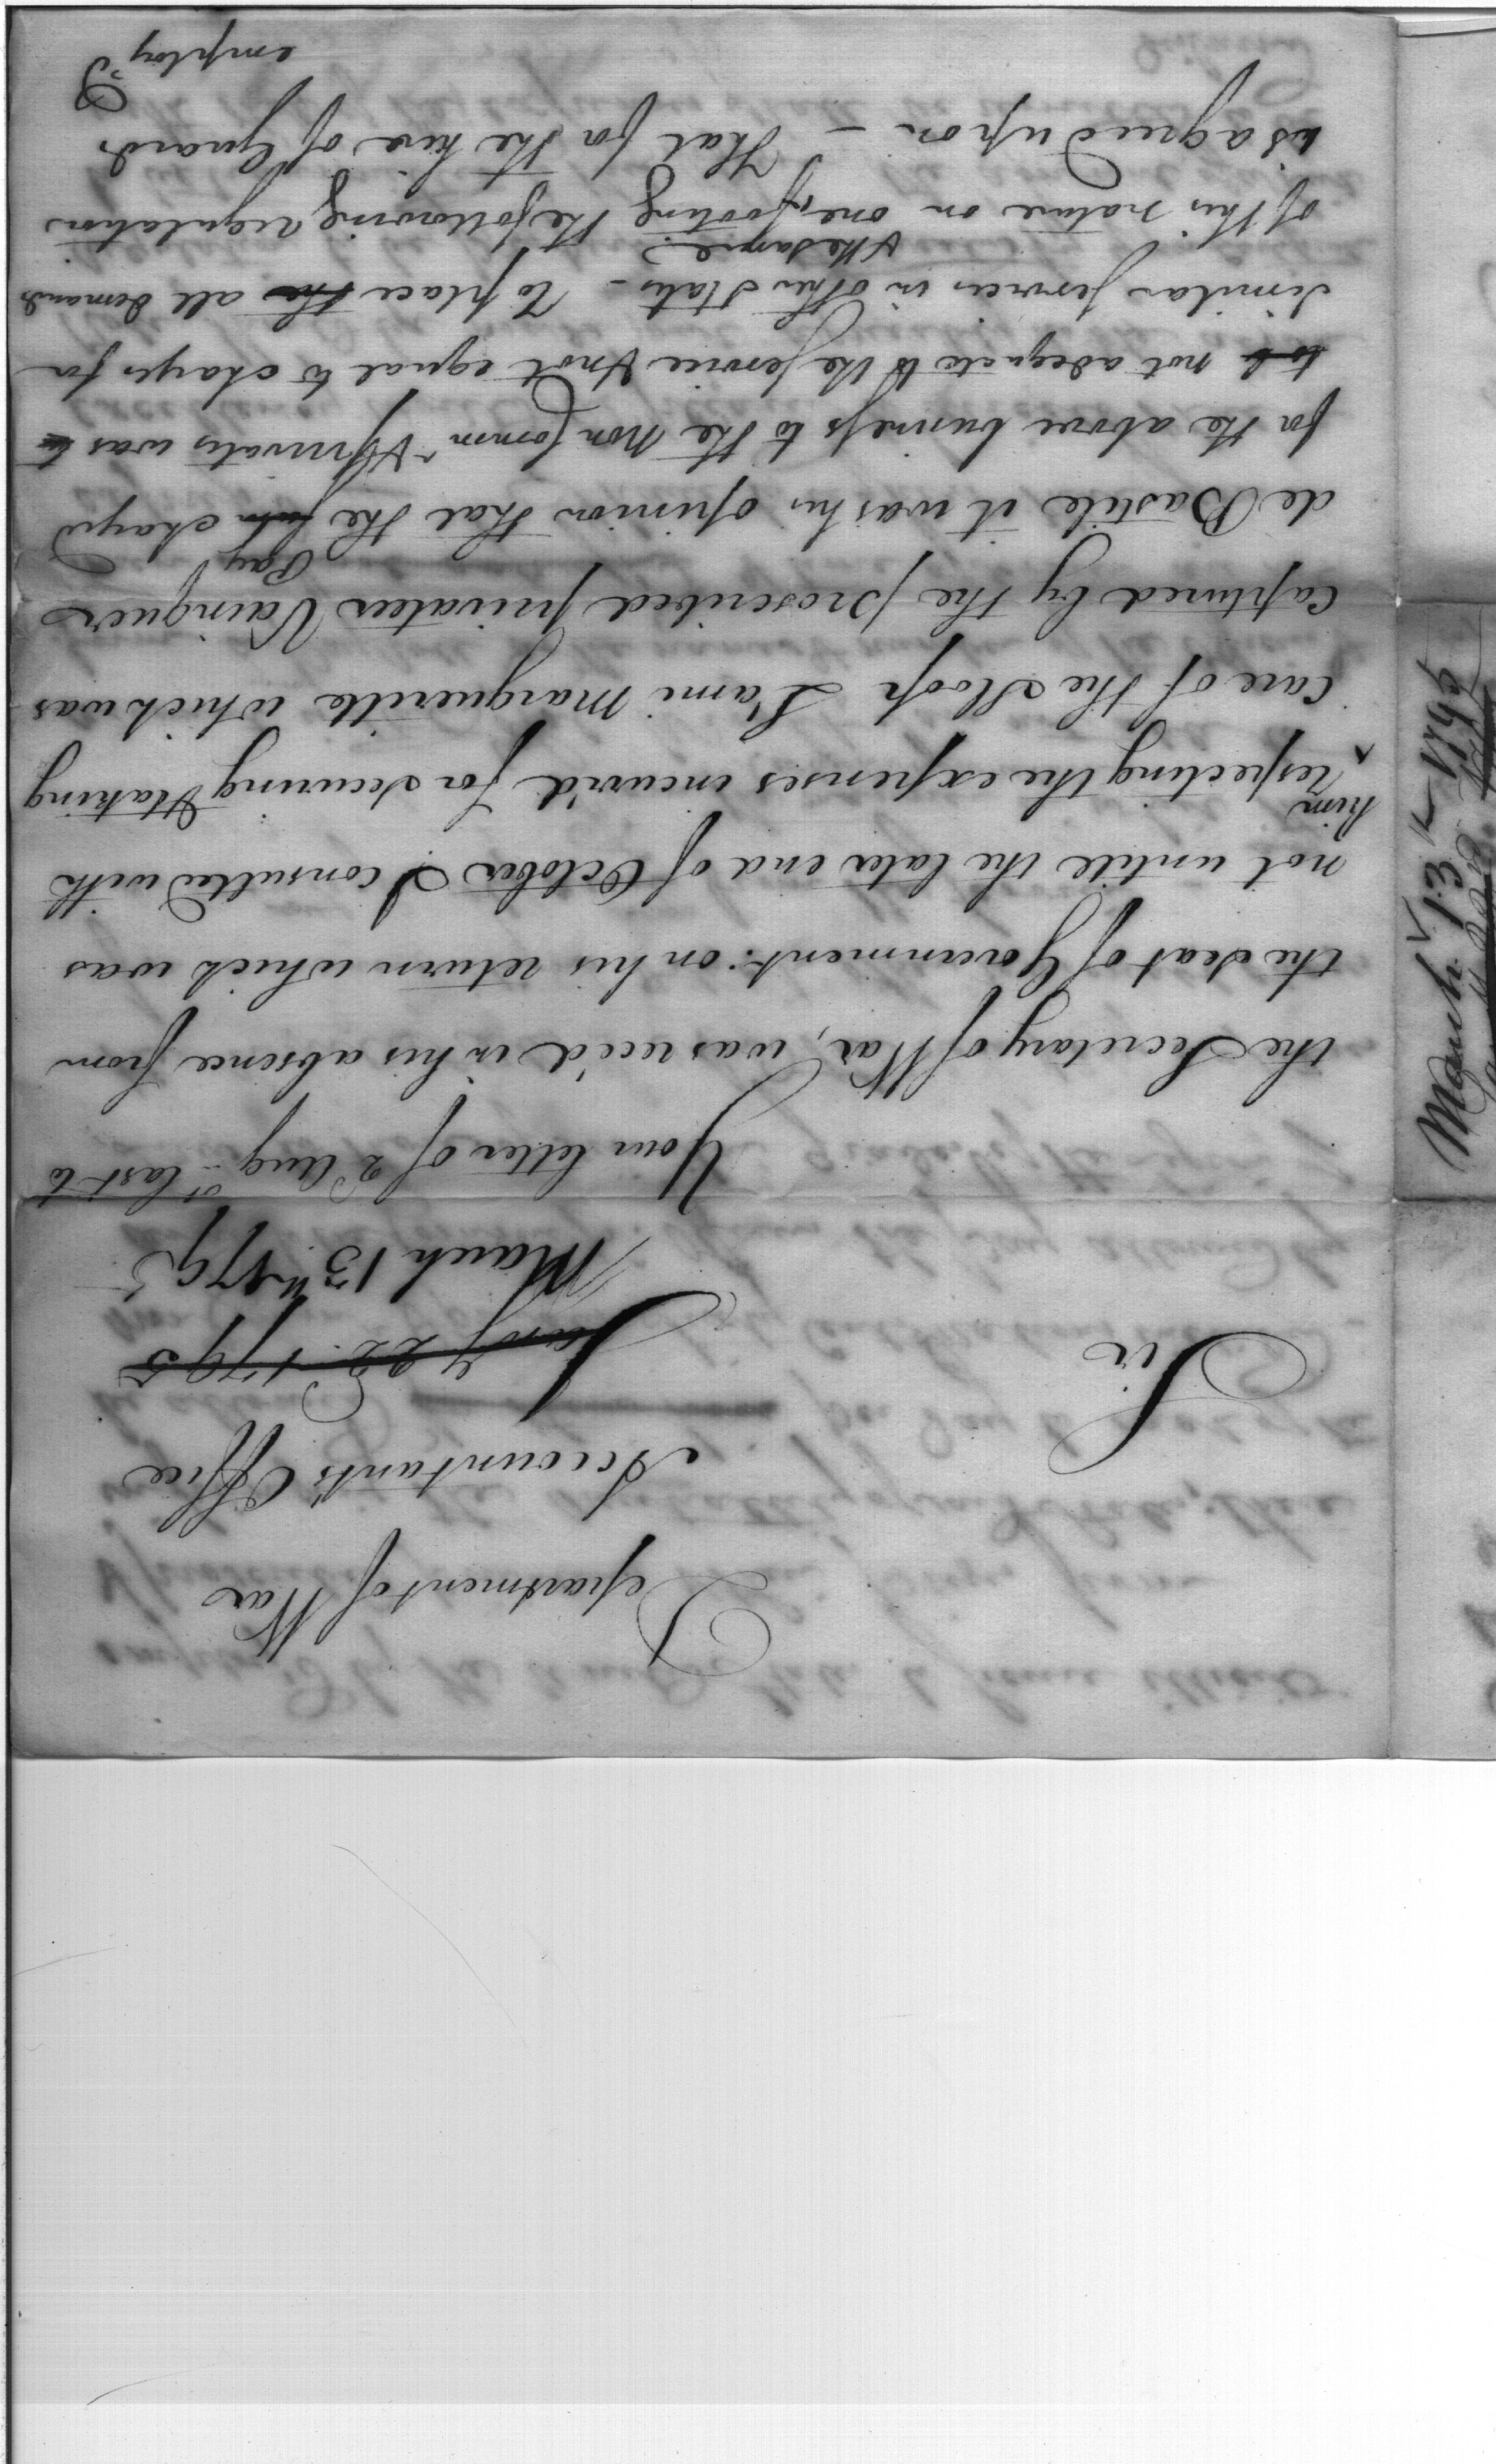 Department of War
Accountants Office
Jan'y 22. 1795
March 13th 1795
Sir
Your letter of 2d Augt last to
the Secretary of War, was rec'd in his absence from
the seat of Government: on his return which was
not untill the later end of October I consulted with
him
respecting the expenses incurr'd for securing & taking
care of the Sloop L'ami Marguerite which was
captured by the proscribed privateer Vainqueur
de Bastile it was his opinion that the Pay charged
for the above business to the Non Comm & privates was to
to b not adequate to the service & not equal to charges for
similar services in other States - To place the all demands
of this nature on one & the same footing the following regulation
is agreed upon - That for the hire of Guards
employ'd
March 13th 1795